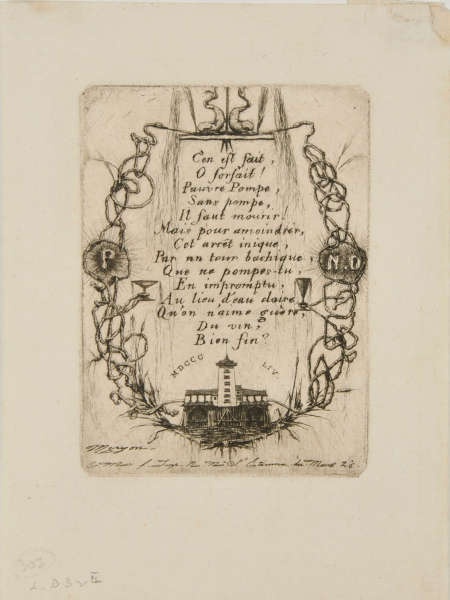 C'en est fait,
O forfait!
Pauvre Pompe,
Sans pompe,
Il faut mourir!
Mais pour amoindrir,
Cet arrêt inique,
Par un tour bachique,
Que ne pompes-tu,
En impromptu,
Au lieu d'eau claire,
Qu'on n'aime guère,
Du vin,
Bien fin?
P
N. D
MDCCC LIV.
Meryon
303
L. D 32 II